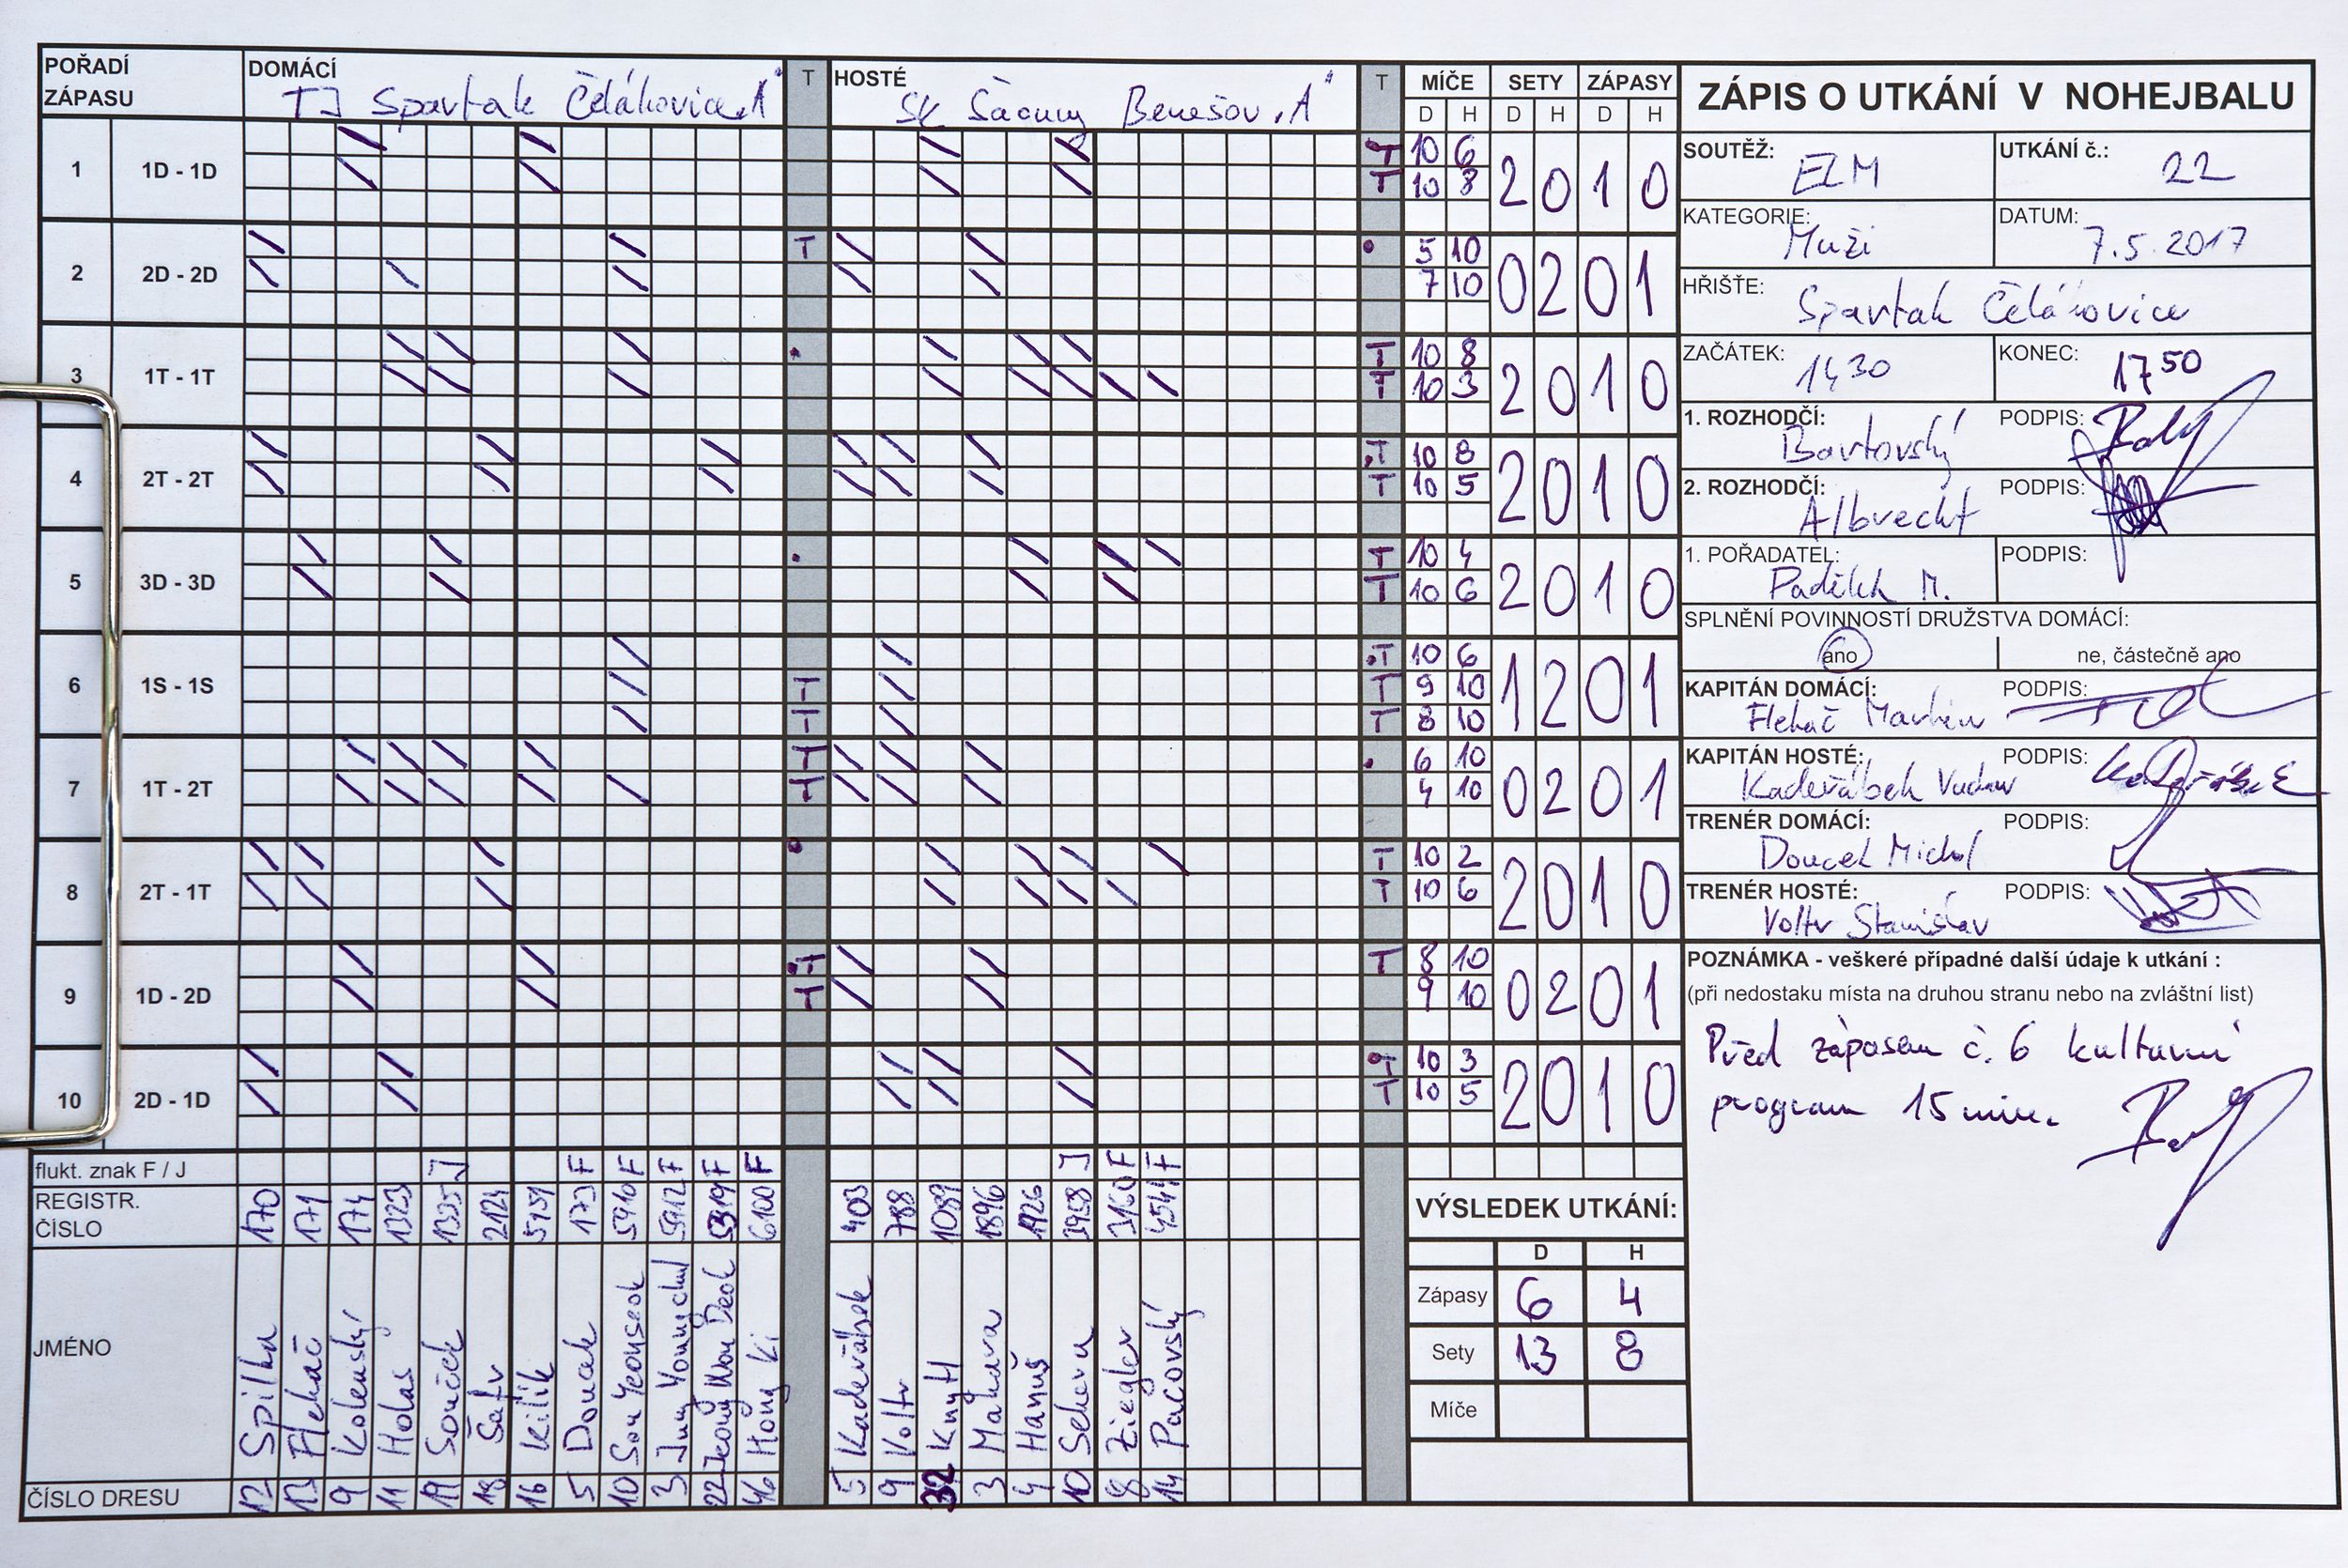 POŘADÍ
ZÁPASU
DOMÁCÍ
TJ Spartak Čelákovice „A"
T
HOSTÉ
SK Šacung Benešov „A"
T
MÍČE SETY ZÁPASY
D H D H D H
ZÁPIS O UTKÁNÍ V NOHEJBALU
SOUTĚŽ: EZM
UTKÁNÍ č.: 22
KATEGORIE: Muži
DATUM: 7.5.2017
HŘIŠTĚ: Spartak Čelákovice
ZAČÁTEK: 14 30
KONEC: 17 50
1. ROZHODČÍ: Bartovský
PODPIS:
2. ROZHODČÍ: Albrecht
PODPIS:
1. POŘADATEL: Padělek M.
PODPIS:
SPLNĚNÍ POVINNOSTÍ DRUŽSTVA DOMÁCÍ:
ano
ne, částečně ano
KAPITÁN DOMÁCÍ: Flekač Martin
PODPIS:
KAPITÁN HOSTÉ: Kadeřábek
PODPIS:
TRENÉR DOMÁCÍ: Doucek Michal
PODPIS:
TRENÉR HOSTÉ: Voltr Stanislav
PODPIS:
POZNÁMKA - veškeré případné další údaje k utkání :
(při nedostaku místa na druhou stranu nebo na zvláštní list)
Před zápasem č. 6 kulturní
program 15 min.
1 1D - 1D T 10 6 2 0 1 0
T 10 8
2 2D - 2D T 5 10 0 2 0 1
7 10
3 1T - 1T T 10 8 2 0 1 0
T 10 3
4 2T - 2T T 10 8 2 0 1 0
T 10 5
5 3D - 3D T 10 4 2 0 1 0
T 10 6
6 1S - 1S T 10 6 1 2 0 1
T T 9 10
T T 8 10
7 1T - 2T T 6 10 0 2 0 1
T 4 10
8 2T - 1T T 10 2 2 0 1 0
T 10 6
9 1D - 2D T T 8 10 0 2 0 1
T 9 10
10 2D - 1D T 10 3 2 0 1 0
T 10 5
flukt. znak F / J
J F F F F F J F F
REGISTR.
ČÍSLO
170 171 174 1323 1335 2124 5151 173 5910 5912 6100
403 788 1089 1896 1926 3958 3160 4544
JMÉNO
Spilka Flekač Kolenský Holas Souček Šatr Kilik Doucek Son Yeonseok Jung Youngchul Jeong Won Deok Hong Ki
Kadeřábek Voltr Knytl Maňhava Hanuš Ziegler Pacovský
ČÍSLO DRESU
12 13 9 11 19 18 16 5 10 3 22 46
5 9 32 3 4 10 8 14
VÝSLEDEK UTKÁNÍ:
D H
Zápasy 6 4
Sety 13 8
Míče